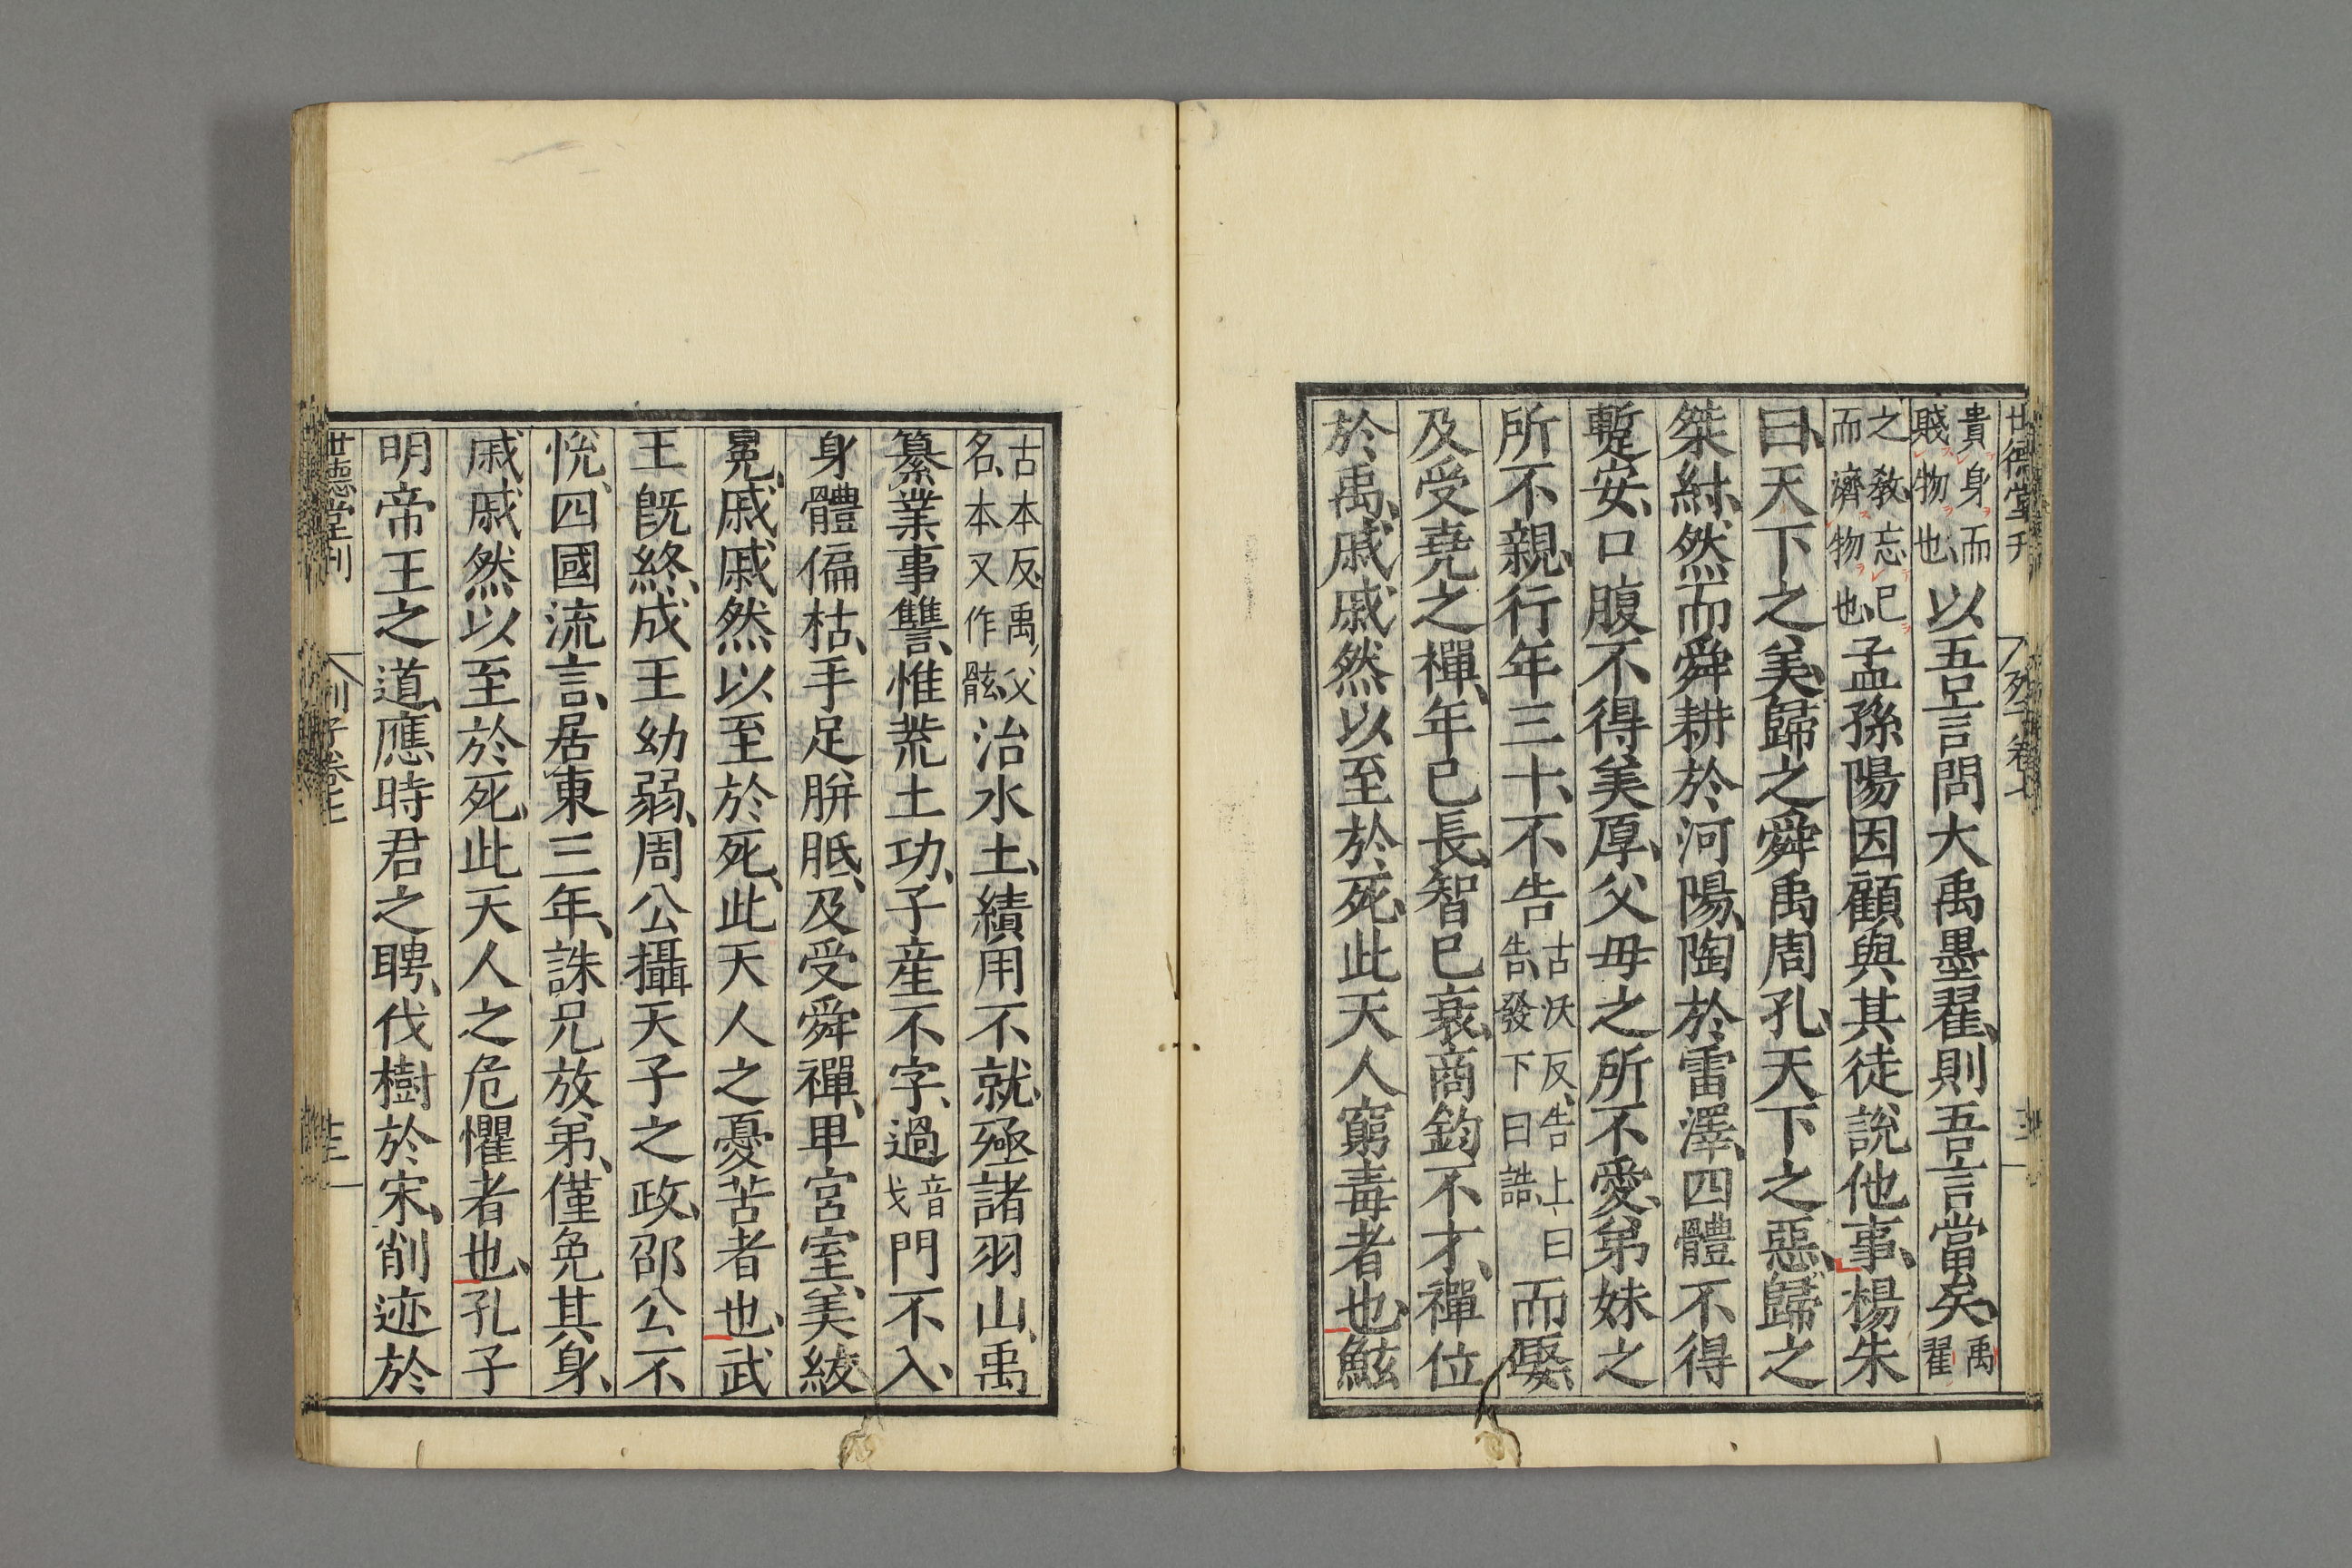 世德堂刊 列子卷七
貴身而賤物也以吾言問大禹墨翟則吾言當矣禹翟
之敎忘己而濟物也孟孫陽因顧與其徒說他事楊朱
曰天下之美歸之舜禹周孔天下之惡歸之
桀紂然而舜耕於河陽陶於雷澤四體不得
蹔安口腹不得美厚父毋之所不愛弟妹之
所不親行年三十不告古沃反告上曰告發下曰誥而娶
及受堯之禪年已長智已衰商鈞不才禪位
於禹戚戚然以至於死此天人窮毒者也鮌
古本反禹父名本又作骸治水土績用不就殛諸羽山禹
纂業事讐惟荒土功子産不字過音戈門不入
身體偏枯手足胼胝及受舜禪卑宮室美紱
冕戚戚然以至於死此天人之憂苦者也武
王旣終成王幼弱周公攝天子之政邵公不
悅四國流言居東三年誅兄放弟僅免其身
戚戚然以至於死此天人之危懼者也孔子
明帝王之道應時君之聘伐樹於宋削迹於
世德堂刊 列子卷七